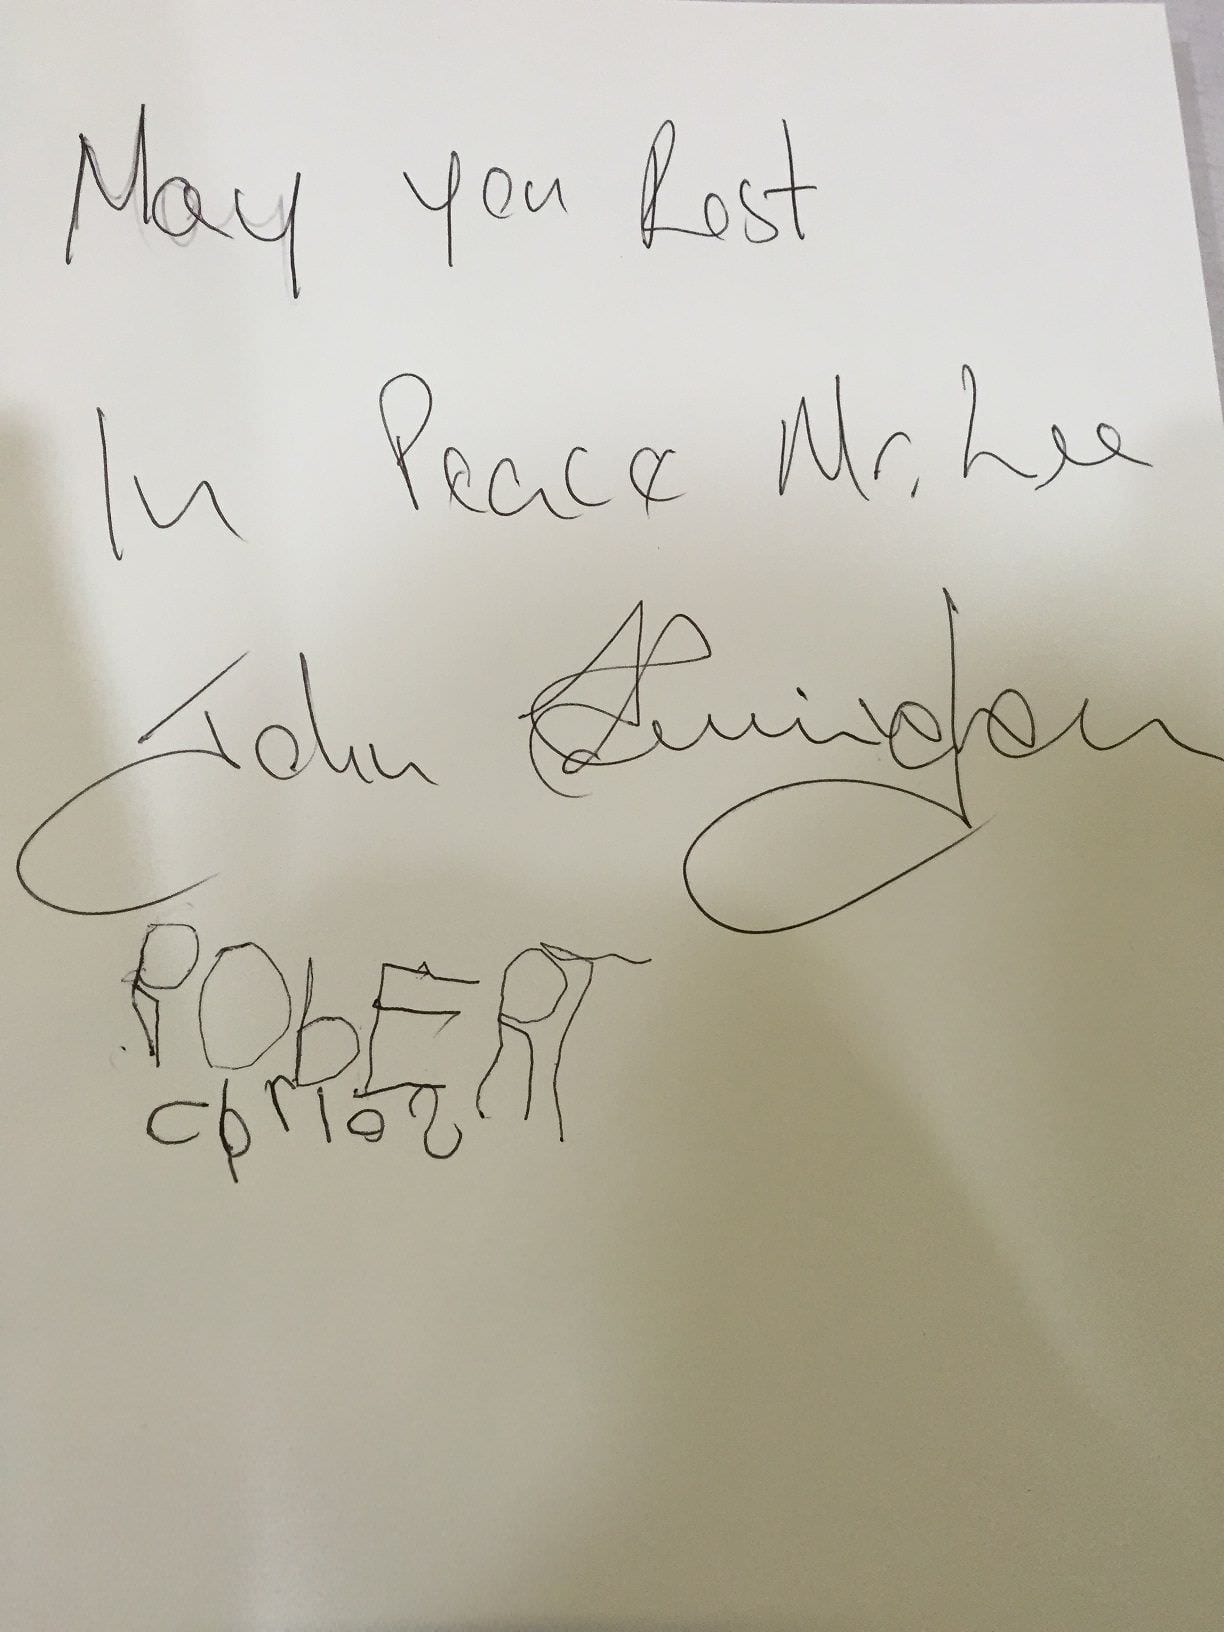 May you Rest
In Peace Mr. Lee
John
RObERT